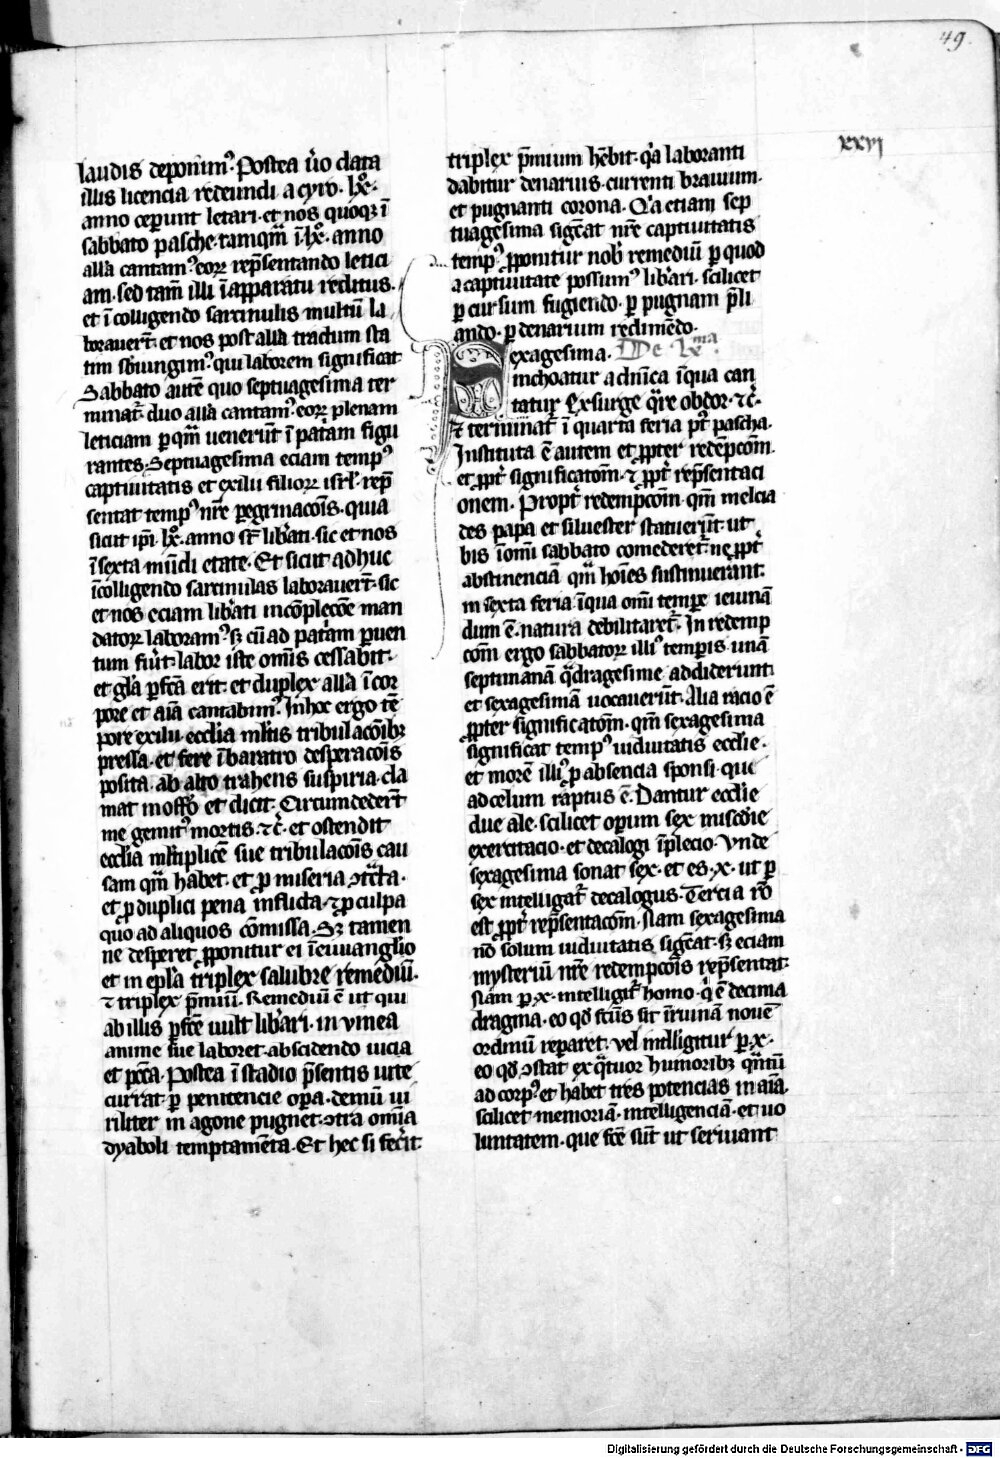 49.
xxvi
laudis deponim⁹. Postea ŭo data
illis licencia redeundi a cyro. lxº.
anno ceperunt letari. et nos quoqꝫ ī
sabbato pasche. tamqm̄ ī. lxº. anno
allā cantam⁹. eoꝝ rep̄sentando letici
am. sed tam̄ illi ī apparatu reditus.
et ī colligendo sarcinulis multū la
borauer̄t. et nos post allā tractum sta
tim sbiungim⁹. qui laborem significat
Sabbato autē quo septuagesima ter
minat᷑. duo allā cantam⁹. eoꝝ plenam
leticiam per qm̄ uenerūt ī patⁱam figu
rantes. Septuagesima eciam temp⁹
captiuitatis et exilii filioꝝ isrl᷑. rep̄
sentat temp⁹ nr̄e ꝑegrinacōis. quia
sicut ip̄i lxº. anno sūt libⁱati. sic et nos
ī sexta mūdi etate. Et sicut adhuc
ī colligendo sarcinulas laborauer̄t. sic
et nos eciam libⁱati in cōplecōe man
datoꝝ laboram⁹. sꝫ cū ad patⁱam ꝑuen
tum fūit. labor iste om̄is cessabit.
et glā ꝑfcā erit. et duplex allā ī cor
pore et aīa cantabim⁹. In hoc ergo tē
pore exilii ecclia mltis tribulacōibꝫ
pressa. et fere ī baratro desperacōis
posita. ab alto trahens suspiria. cla
mat in offō et dicit. Circumdeder̄t
me gemit⁹ mortis. ⁊c̄. et ostendit
ecclia mltiplicē sue tribulacōis cau
sam qm̄ habet. et ꝓ miseria ↄtⁱcta.
et ꝓ duplici pena inflicta. ⁊ ꝓ culpa
quo ad aliquos cōmissa. Sꝫ tamen
ne desperet ꝓponitur ei ī euuanglio
et in epla triplex salubre remediū.
⁊ triplex p̄miū. Remediū ē ut qui
ab illis ꝑfcē uult libⁱari. in vinea
anime sue laboret. abscidendo uicia
et pccā. Postea ī stadio p̄sentis uite
currat ꝑ penitencie opⁱa. demū ui
riliter in agone pugnet. ↄtra omīa
dyaboli temptamēta. Et hec si fecⁱit
triplex p̄mium hēbit. qⁱa laboranti
dabitur denarius. currenti brauium.
et pugnanti corona. Qⁱa etiam sep
tuagesima sigc̄at nr̄e captiuitatis
temp⁹ ꝓponitur nobⁱ remediū ꝑ quod
a captiuitate possum⁹ libⁱari. scilicet
ꝑ cursum fugiendo. ꝑ pugnam p̄li
ando. ꝑ denarium redimēdo.
Sexagesima. De lxᵐᵃ
inchoatur a dnīca ī qua can
tatur Exsurge qⁱre obdor. ⁊c̄.
⁊ terminat᷑ ī quarta feria pt᷑ pascha.
Instituta ē autem et ꝓpter redēpcōm.
et ꝓpt᷑ significatōm. ⁊ ꝓpt᷑ rep̄sentaci
onem. Propt᷑ redempcōm. qm̄ melcia
des papa et siluester statuerūt. ut
bis ī om̄i sabbato comederet᷑. ne ꝓpt᷑
abstinenciā qm̄ hoīes sustinuerant
in sexta feria ī qua om̄i tempꝛe ieiunā
dum ē. natura debilitaret᷑. In redemp
cōm ergo sabbatoꝝ illi⁹ tempⁱis unā
septimanā qⁱdragesime addiderunt
et sexagesimā uocauerūt. Alia racio ē
ꝓpter significatōm. qm̄ sexagesima
significat temp⁹ uiduitatis ecclie.
et morē illi⁹ ꝑ absencia sponsi. qui
ad celum raptus ē. Dantur ecclie
due ale. scilicet oꝑum sex miscdie
exercitacio. et decalogi īplecio. Vnde
sexagesima sonat sex. et es. x. ut ꝑ
sex intelligat᷑ decalogus. Tercia rō
est ꝓpt᷑ rep̄sentacōm. Nam sexagesima
nō solum uiduitatis sigc̄at. sꝫ eciam
mysteriū nr̄e redempcōis rep̄sentat.
Nam ꝑ. x. intelligit᷑ homo. qⁱ ē decima
dragma. eo qd̄ fc̄us sit ī ruinā nouē
ordinū reparet. vel intelligitur ꝑ. x.
eo qd̄ ↄstat ex qⁱtuor humoribꝫ qⁱntū
ad corp⁹. et habet tres potencias in aīa.
scilicet memoriā. intelligenciā. et uo
luntatem. que fcē sūt ut seruiant
Digitalisierung gefördert durch die Deutsche Forschungsgemeinschaft - DFG